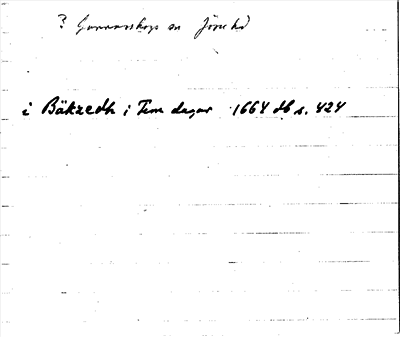 ? Gunnarskogs sn Jösehd
i Bäkzedh i Fem dagar 1664 db s. 424